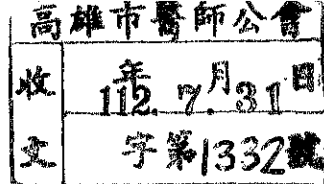 高雄市醫師公會
收文
112年7月31日
字第1332號